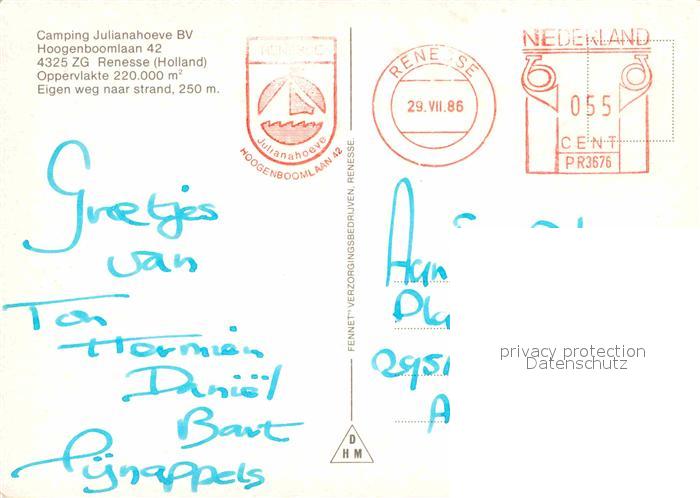 Camping Julianahoeve BV
Hoogenboomlaan 42
4325 ZG Renesse (Holland)
Oppervlakte 220.000 m²
Eigen weg naar strand, 250 m.
RENESSE
Julianahoeve
HOOGENBOOMLAAN 42
RENESSE
29.VII.86
NEDERLAND
055
CENT
PR3676
Groetjes
van
Ton
Hermien
Daniël
Bart
Pijnappels
FENNET'S VERZORGINGSBEDRIJVEN, RENESSE.
D
H M
Aan
2951
A
privacy protection
Datenschutz